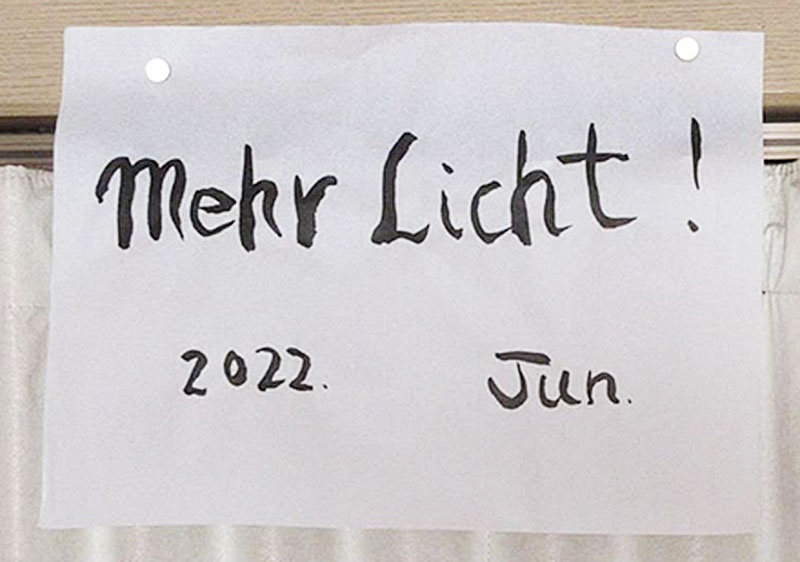 Mehr Licht!
2022. Jun.